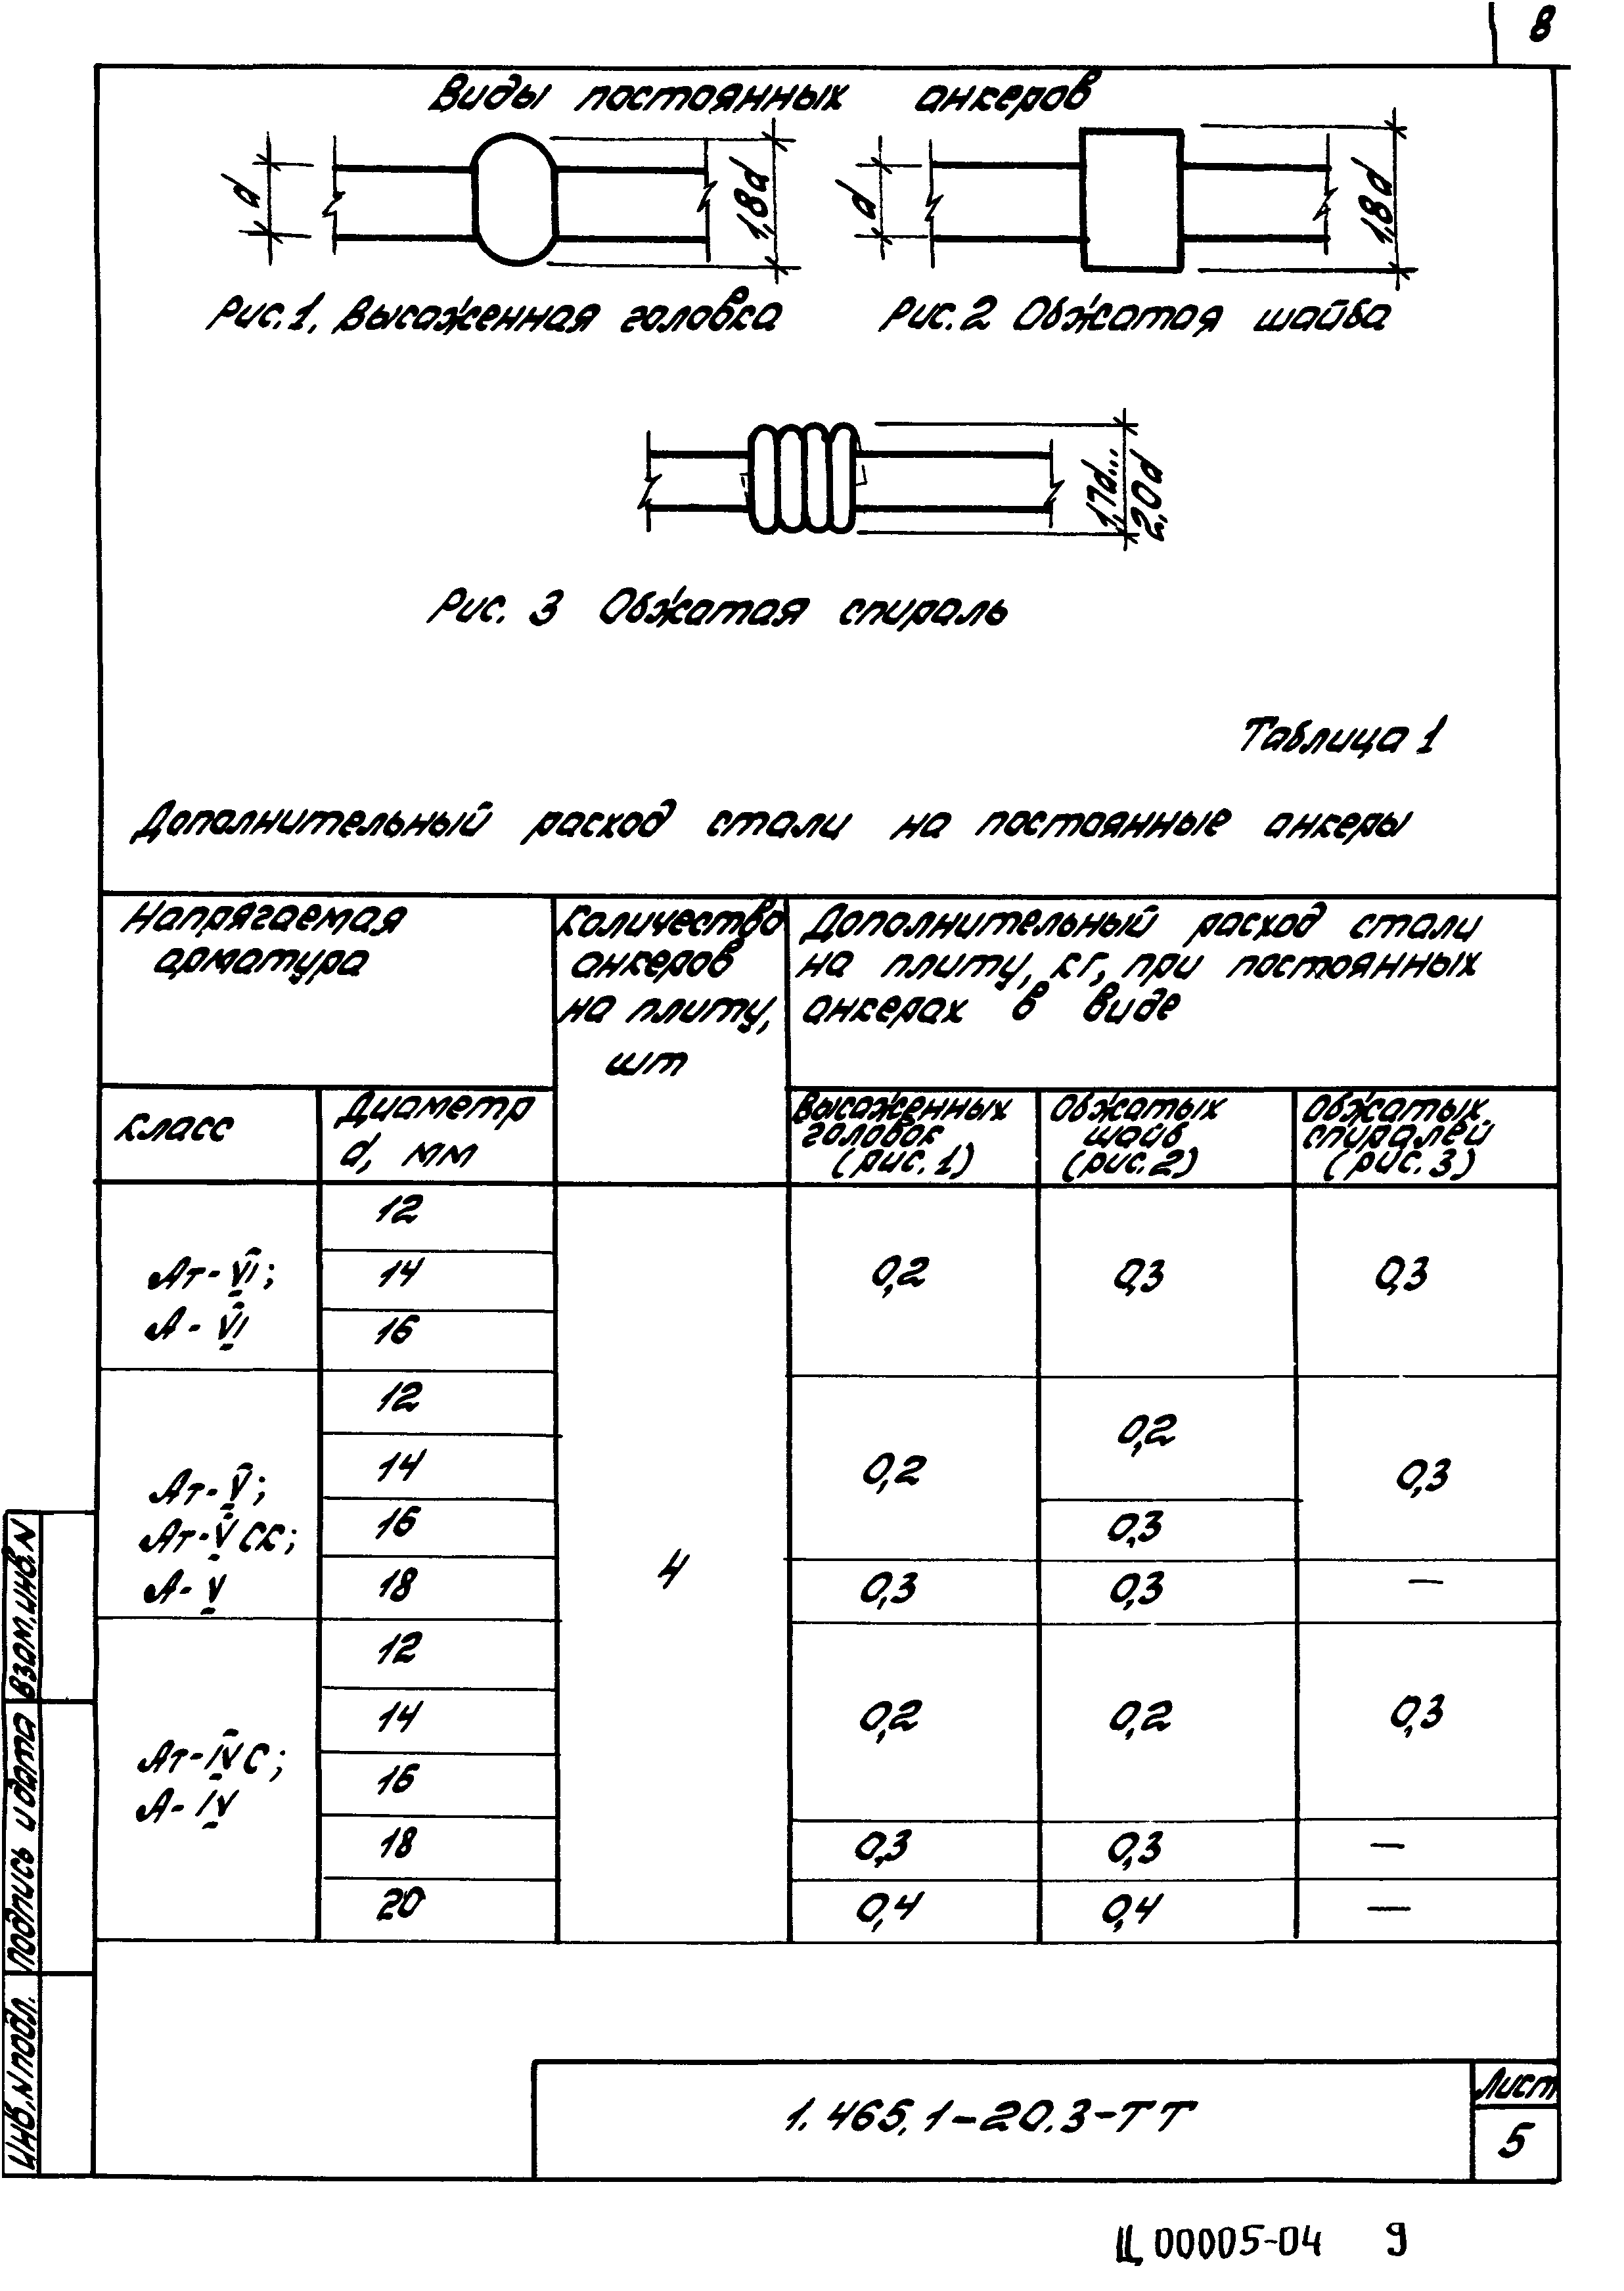 8
Виды постоянных анкеров
d
1,8d
d
1,8d
Рис.1. Высаженная головка
Рис.2 Обжатая шайба
1,7d...
2,0d
Рис. 3 Обжатая спираль
Таблица 1
Дополнительный расход стали на постоянные анкеры
Напрягаемая
арматура
Количество
анкеров
на плиту,
шт
Дополнительный расход стали
на плиту, кг, при постоянных
анкерах в виде
Класс
Диаметр
d, мм
Высаженных
головок
(рис. 1)
Обжатых
шайб
(рис. 2)
Обжатых
спиралей
(рис. 3)
Ат-VI;
А-VI
12
14
16
0,2
0,3
0,3
Ат-V;
Ат-VСК;
А-V
12
14
16
18
4
0,2
0,2
0,3
0,3
0,3
0,3
—
Ат-IVС;
А-IV
12
14
16
18
20
0,2
0,2
0,3
0,3
0,3
—
0,4
0,4
—
Взам.инв.N
Подпись и дата
Инв.N подл.
1.465.1-20.3-ТТ
Лист
5
Ц00005-04 9